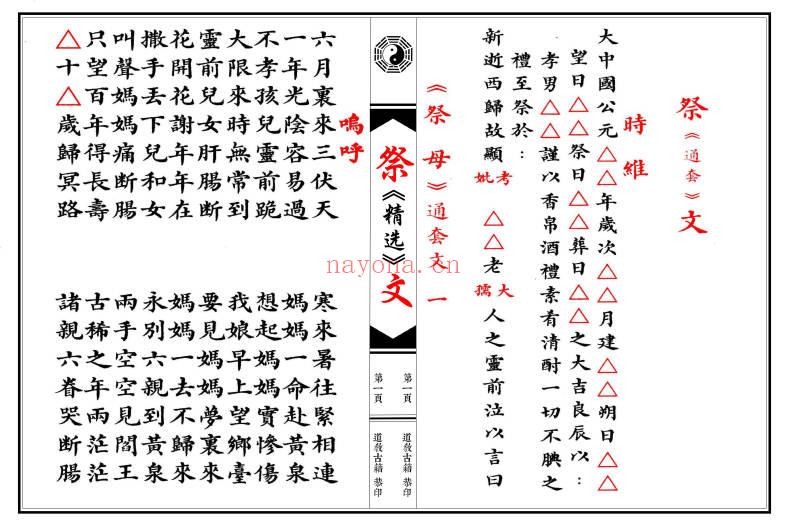 祭《通套》文
時維
大中國公元△△年歲次△△月建△△朔日△△
望日△△祭日△△葬日△△之大吉良辰以：
孝男△△謹以香帛酒禮素肴清酎一切不腆之
禮至祭於：
新逝西歸故顯考妣△△老大孺人之靈前泣以言曰
《祭母》通套文一
祭《精选》文
第一頁
第一頁
道教古籍 恭印
道教古籍 恭印
嗚呼
六月裏來三伏天 寒來暑往緊相連
一年光陰容易過 媽媽一命赴黃泉
不孝孩兒靈前跪 想起媽媽實慘傷
大限來時無常到 我娘早上望鄉臺
靈前兒女肝腸斷 要見媽媽夢裏來
花開花謝年年在 媽媽一去不歸來
撒手丟下兒和女 永別六親到黃泉
叫聲媽媽痛断腸 兩手空空見閻王
只望百年得長壽 古稀之年兩茫茫
△十△歲歸冥路 諸親六眷哭断腸
nayona.cn